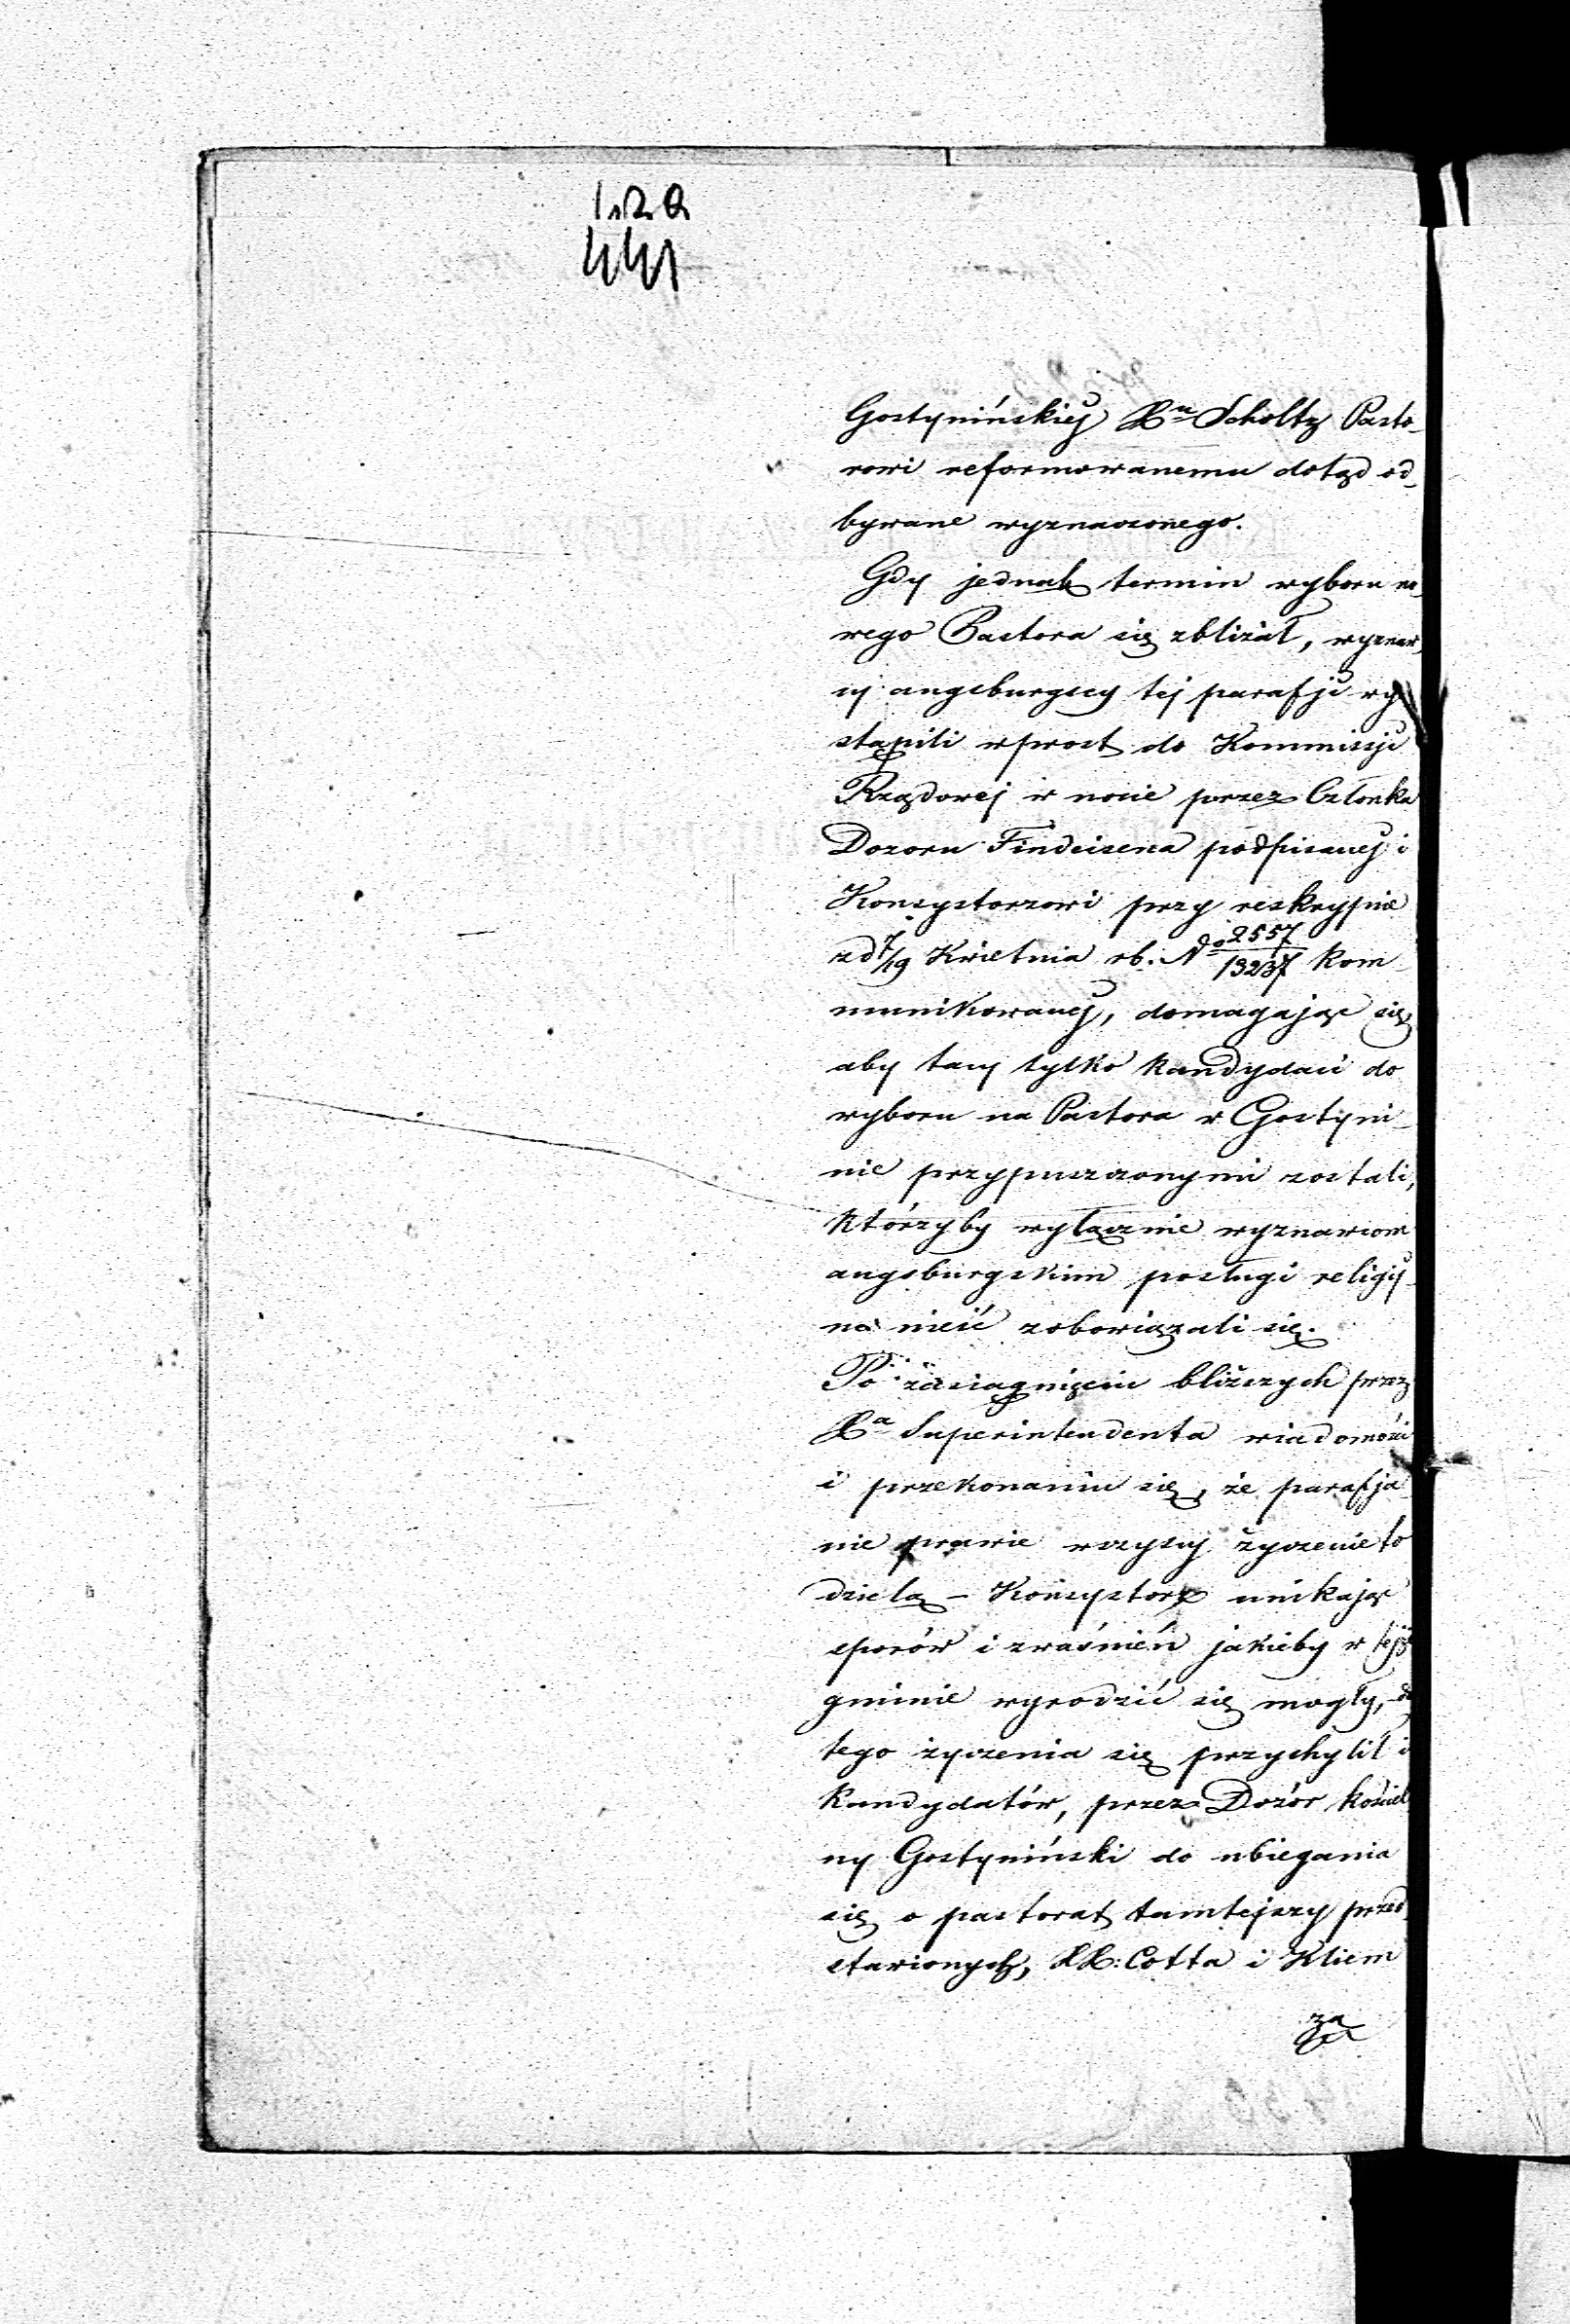 428
441
Gostynińskiéj Xu Scholtz Pasto-
rowi reformowanemu dotąd od-
bywane wyznaczonego.
Gdy jednak termin wyboru no-
wego Pastora się zbliżał, wyznaw-
cy augsburgscy tej parafji wy-
stąpili wprost do Kommissji
Rządowej w nocie przez Członka
Dozoru Findeisena podpisanej i
Konsystorzowi przy reskrypcie
z d 7/19 Kwietnia rb. No 2557/13237 kom-
munikowanej, domagając się
aby tacy tylko kandydaci do
wyboru na Pastora w Gostyni-
nie przypuszczonymi zostali,
którzyby wyłącznie wyznawcom
augsburgskim posługi religij-
ne nieść zobowiązali się.
Po zasiągnięciu bliższych przez
Xa Superintendenta wiadomości
i przekonaniu się, że parafja-
nie prawie wszyscy życzenie to
dzielą – Konsystorz unikając
sporów i zwaśnień jakieby w tejże
gminie wyrodzić się mogły, do
tego życzenia się przychylił i
Kandydatów, przez Dozór kościel
ny Gostyniński do ubiegania
się o pastorat tamtejszy przed-
stawionych, XX: Cotta i Kliem
za